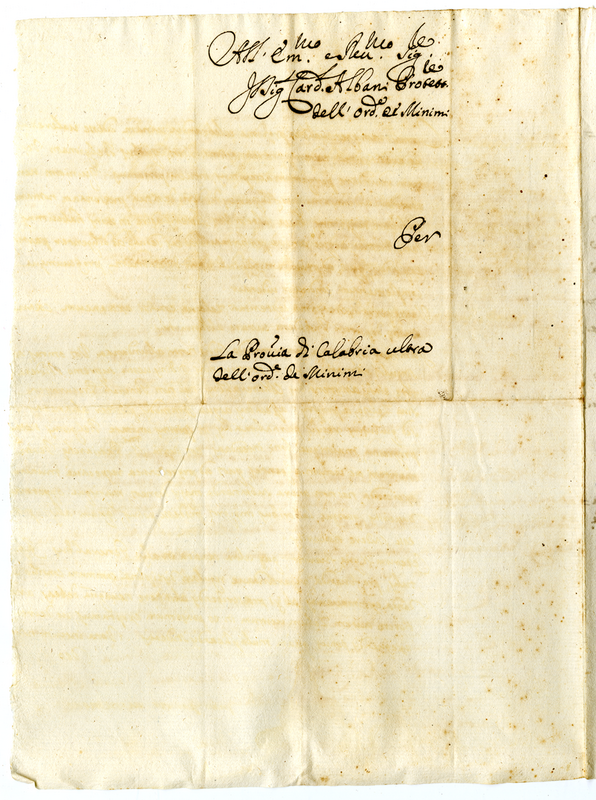 All' Em.mo e Reu.mo Sig.re
Il Sig Card. Albani Protett.re
dell' ord.e de Minimi
Per
La Prouia di Calabria ultra
dell' ord.e de Minimi